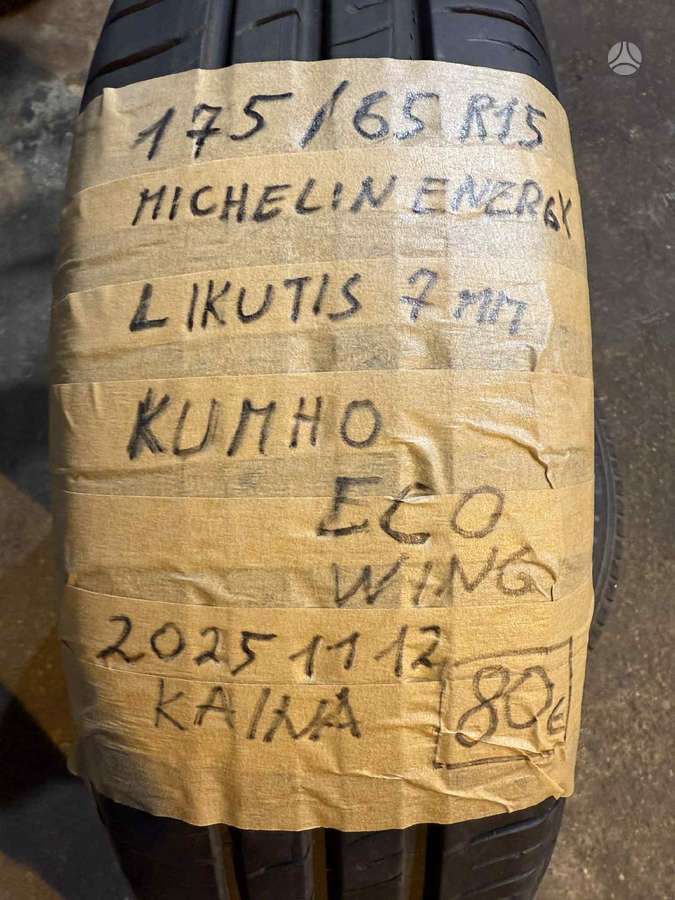 175/65 R15
MICHELIN ENERGY
LIKUTIS 7 MM
KUMHO
ECO
WING
2025 11 12
KAINA 80€